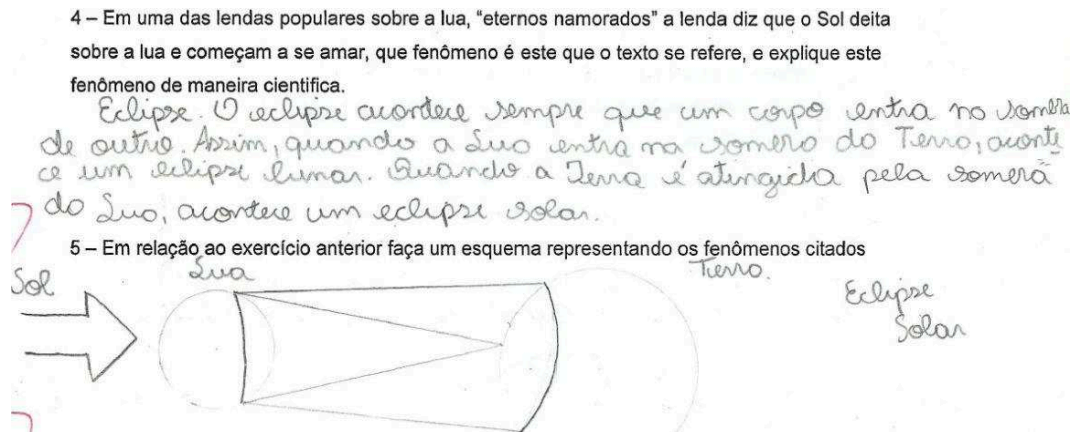 4 – Em uma das lendas populares sobre a lua, “eternos namorados” a lenda diz que o Sol deita
sobre a lua e começam a se amar, que fenômeno é este que o texto se refere, e explique este
fenômeno de maneira cientifica.
Eclipse. O eclipse acontece sempre que um corpo entra na sombra
de outro. Assim, quando a Lua entra na sombra da Terra, aconte
ce um eclipse lunar. Quando a Terra é atingida pela sombra
da Lua, acontece um eclipse solar.
5 – Em relação ao exercício anterior faça um esquema representando os fenômenos citados
Sol Lua Terra.
Eclipse
Solar